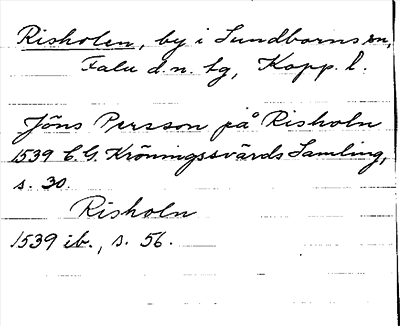 Risholen, by i Sundborns sn,
Falu d.n. tg, Kopp. l.
Jöns Persson på Risholn
1539 C.G. Kröningssvärds Samling,
s. 30.
Risholn
1539 ib., s. 56.